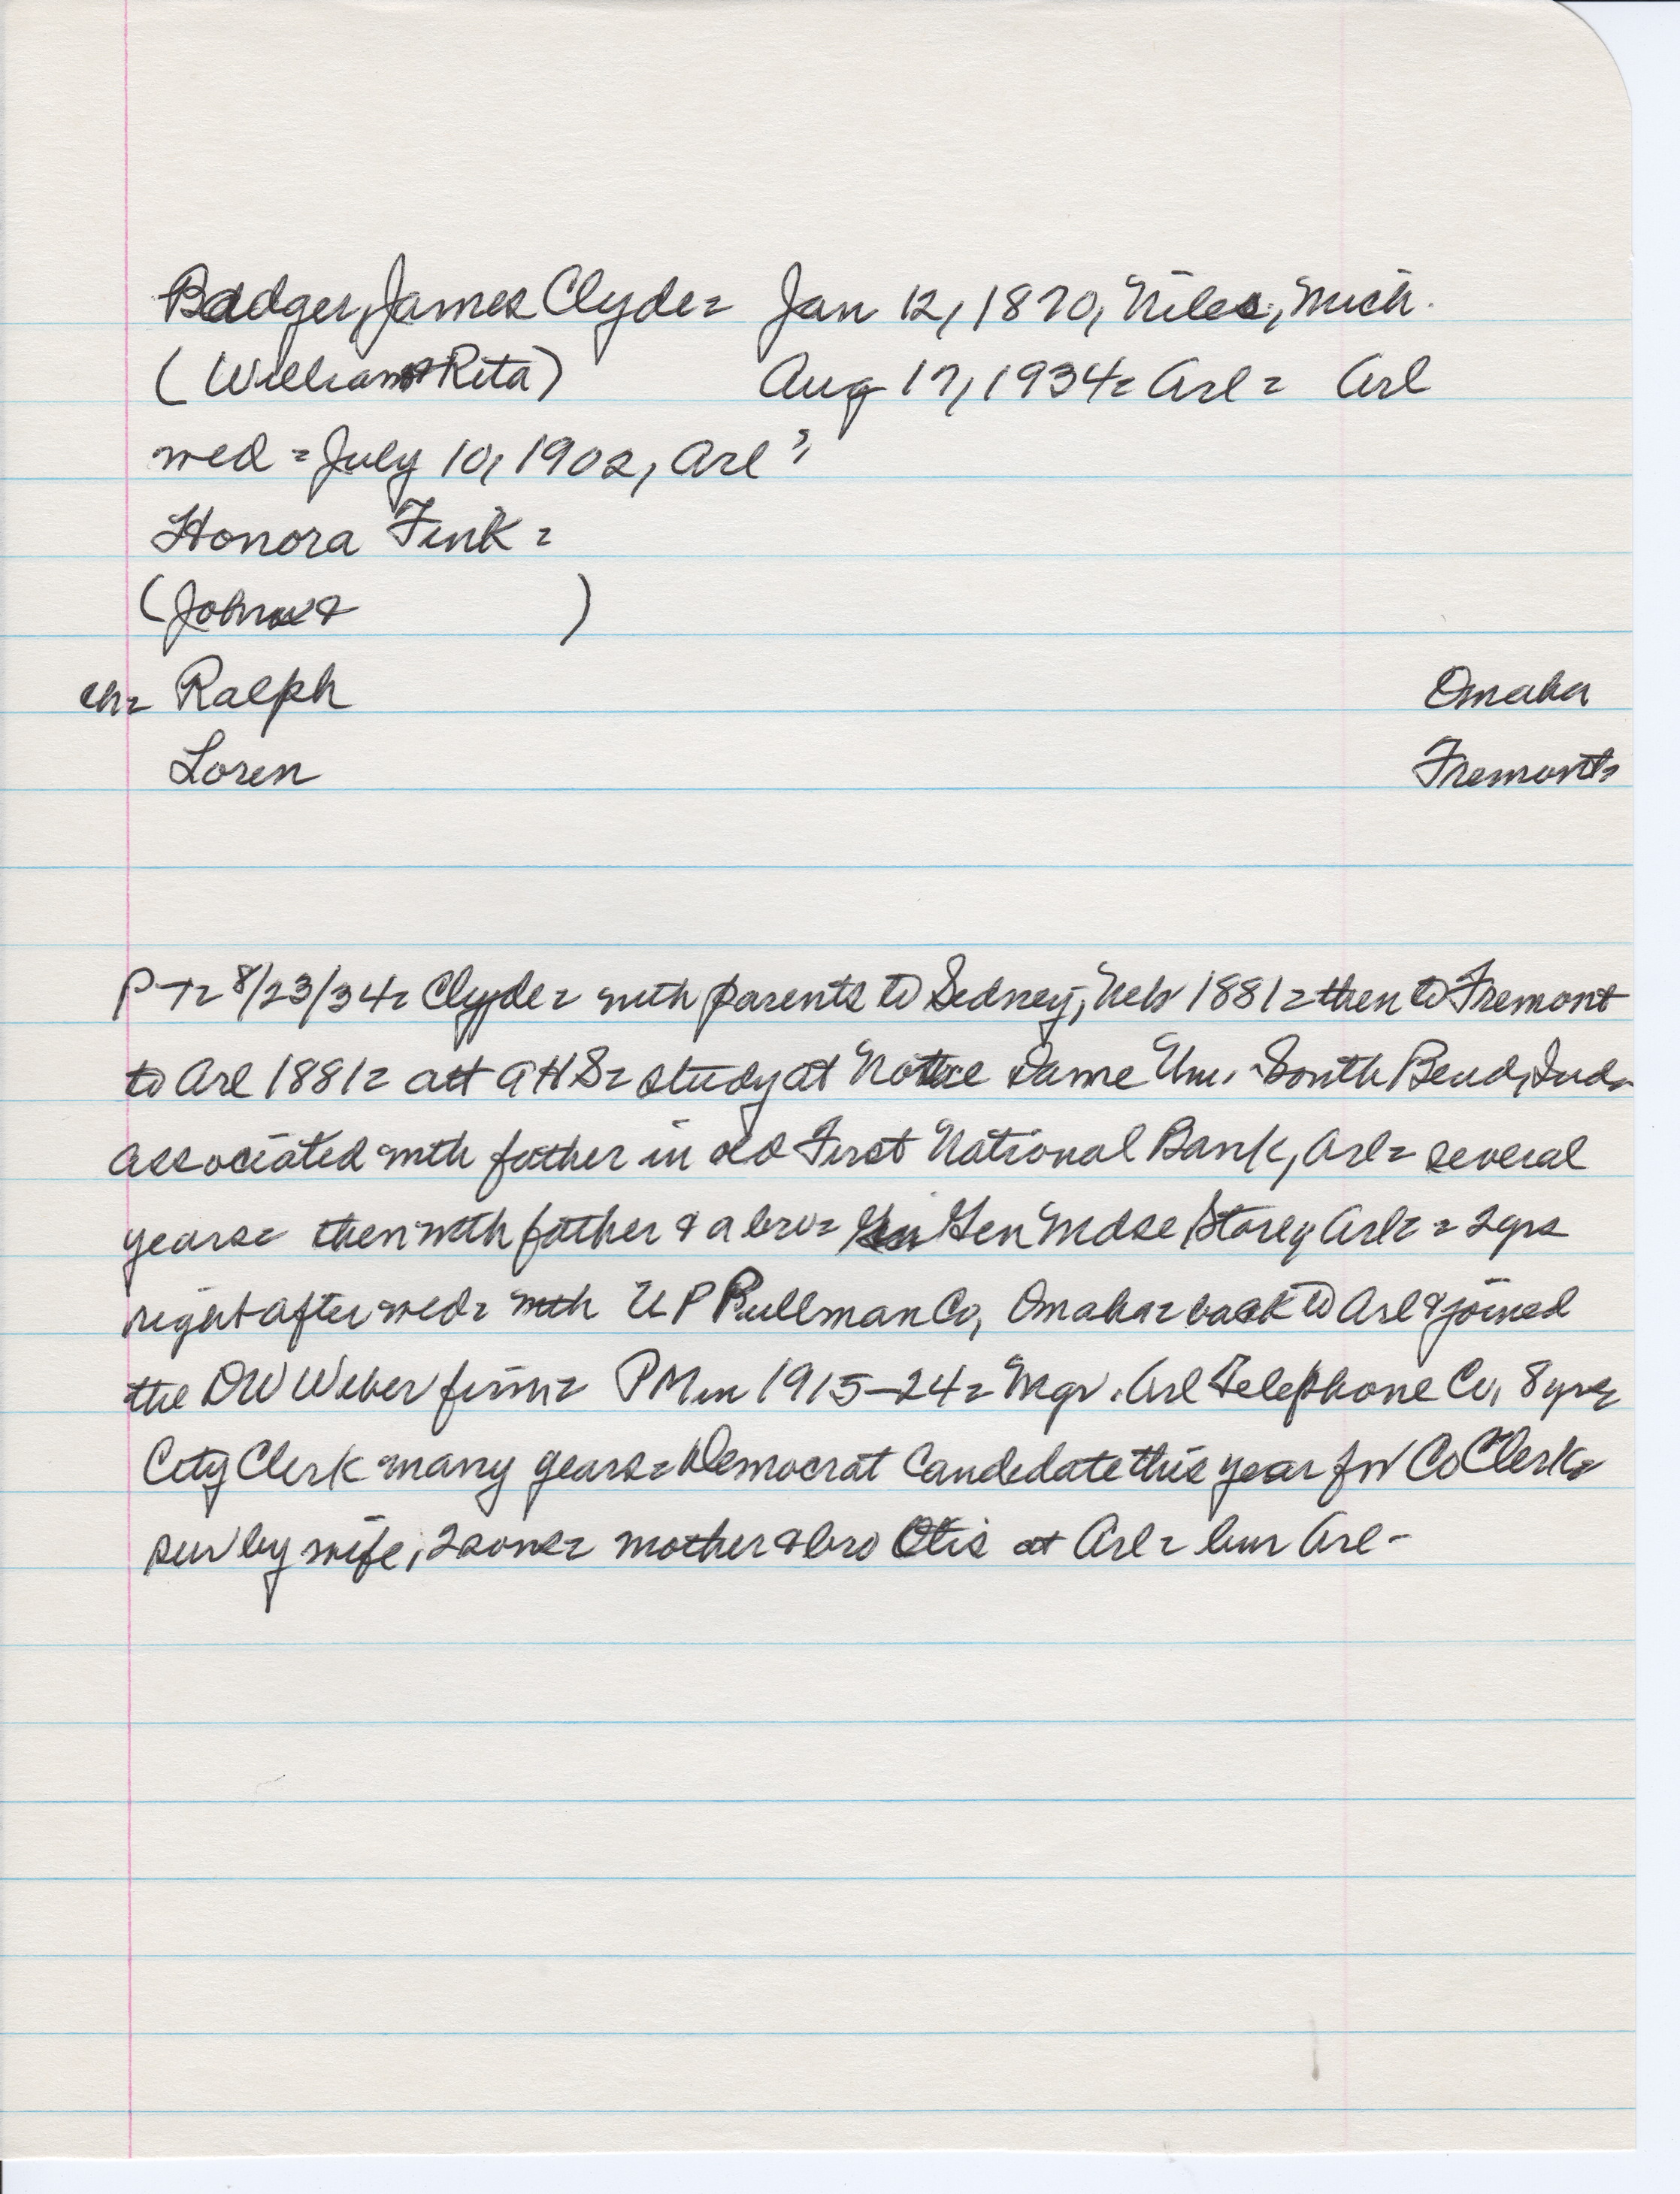 Badger, James Clyde= Jan 12, 1870, Niles, Mich.
(William & Rita) Aug 17, 1934= Arl= Arl
wed = July 10, 1902, Arl=
Honora Fink=
(John & )
ch= Ralph Omaha
Loren Fremont=
P-T= 8/23/34= Clyde= with parents to Sidney, Neb 1881= then to Fremont
to Arl 1881= att AHS= study at Notre Dame Uni. South Bend, Ind=
associated with father in old First National Bank, Arl= several
years= then with father & a bro= Gen Mdse Store, Arl= = 2 yrs
right after wed= with U P Pullman Co, Omaha= back to Arl & joined
the DW Weber firm= PM in 1915-24= Mgr. Arl Telephone Co, 8 yrs=
City Clerk many years= Democrat Candidate this year for Co Clerk=
sur by wife, 2 sons= mother & bro Otis at Arl= bur Arl-